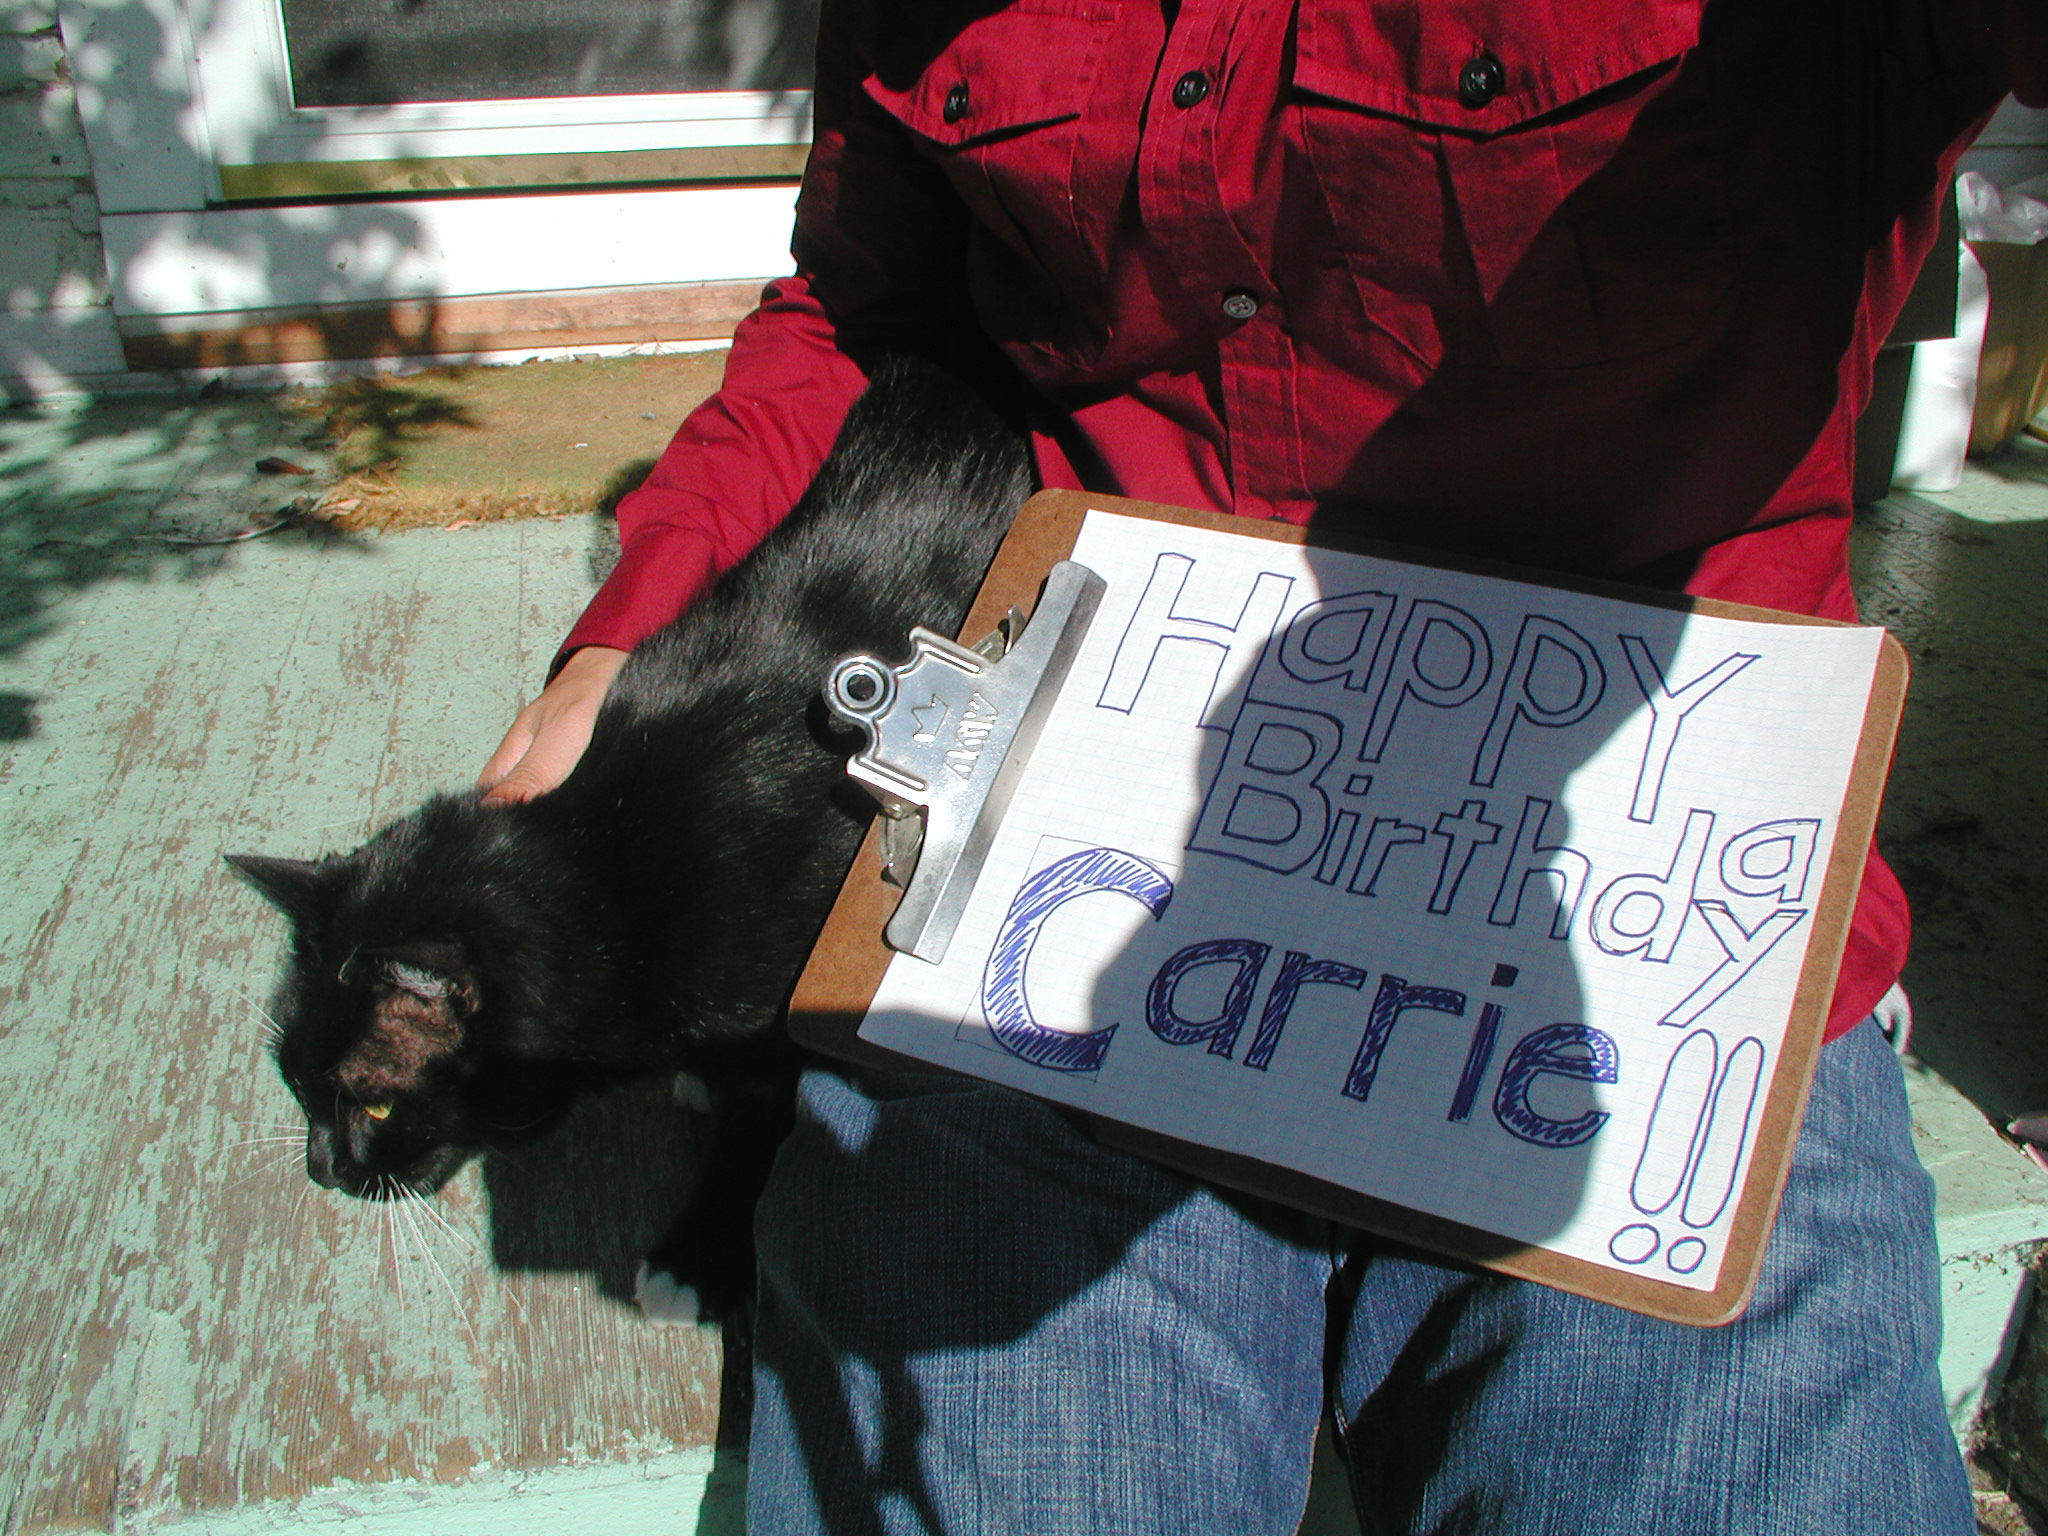 Happy
Birthday
Carrie!!